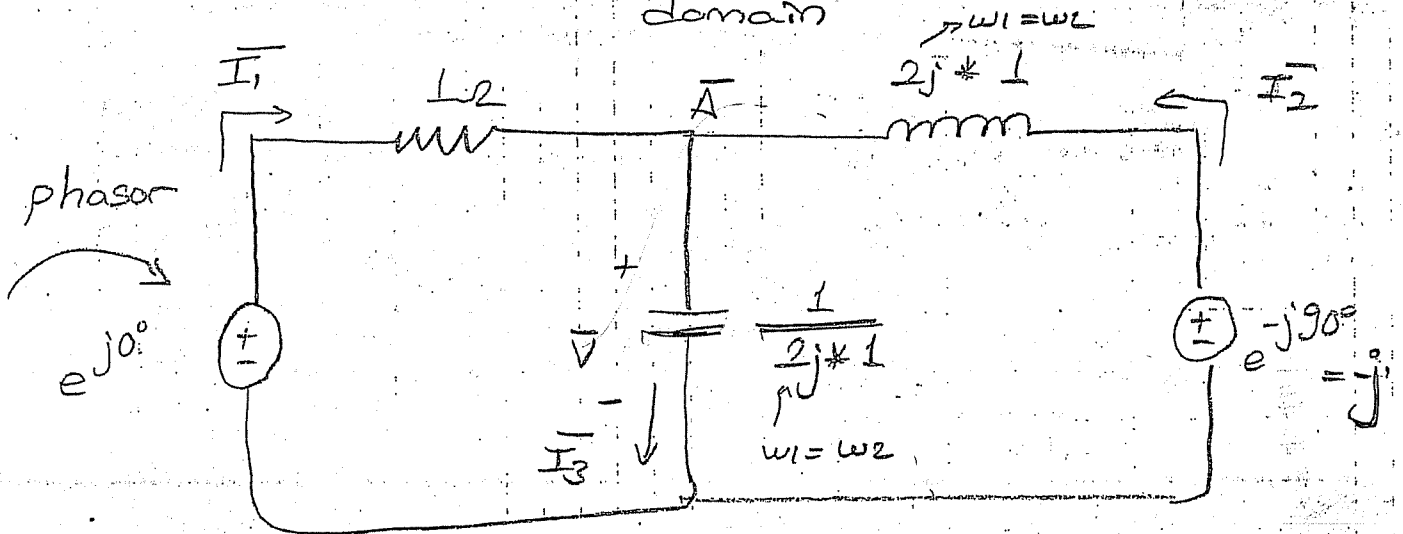 domain
→ w1 = w2
I̅₁
1Ω
A̅
2j * 1
I̅₂
phasor
e^{j0°}
+
-
+
V̅
-
1
2j * 1
w1 = w2
I̅₃
+
-
e^{-j90°}
= -j